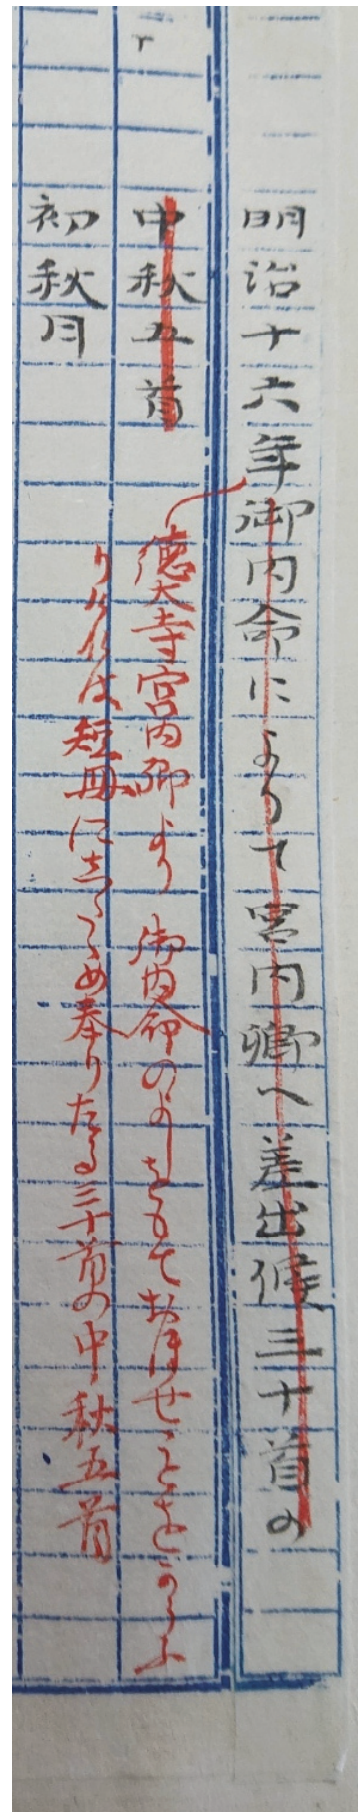 明治十六年御内命によりて宮内卿へ差出候三十首の
中秋五首
徳大寺宮内卿より御内命のよしをもておほせことをかうふ
りけれは短冊にしたゝめ奉りたる三十首の中秋五首
初秋月